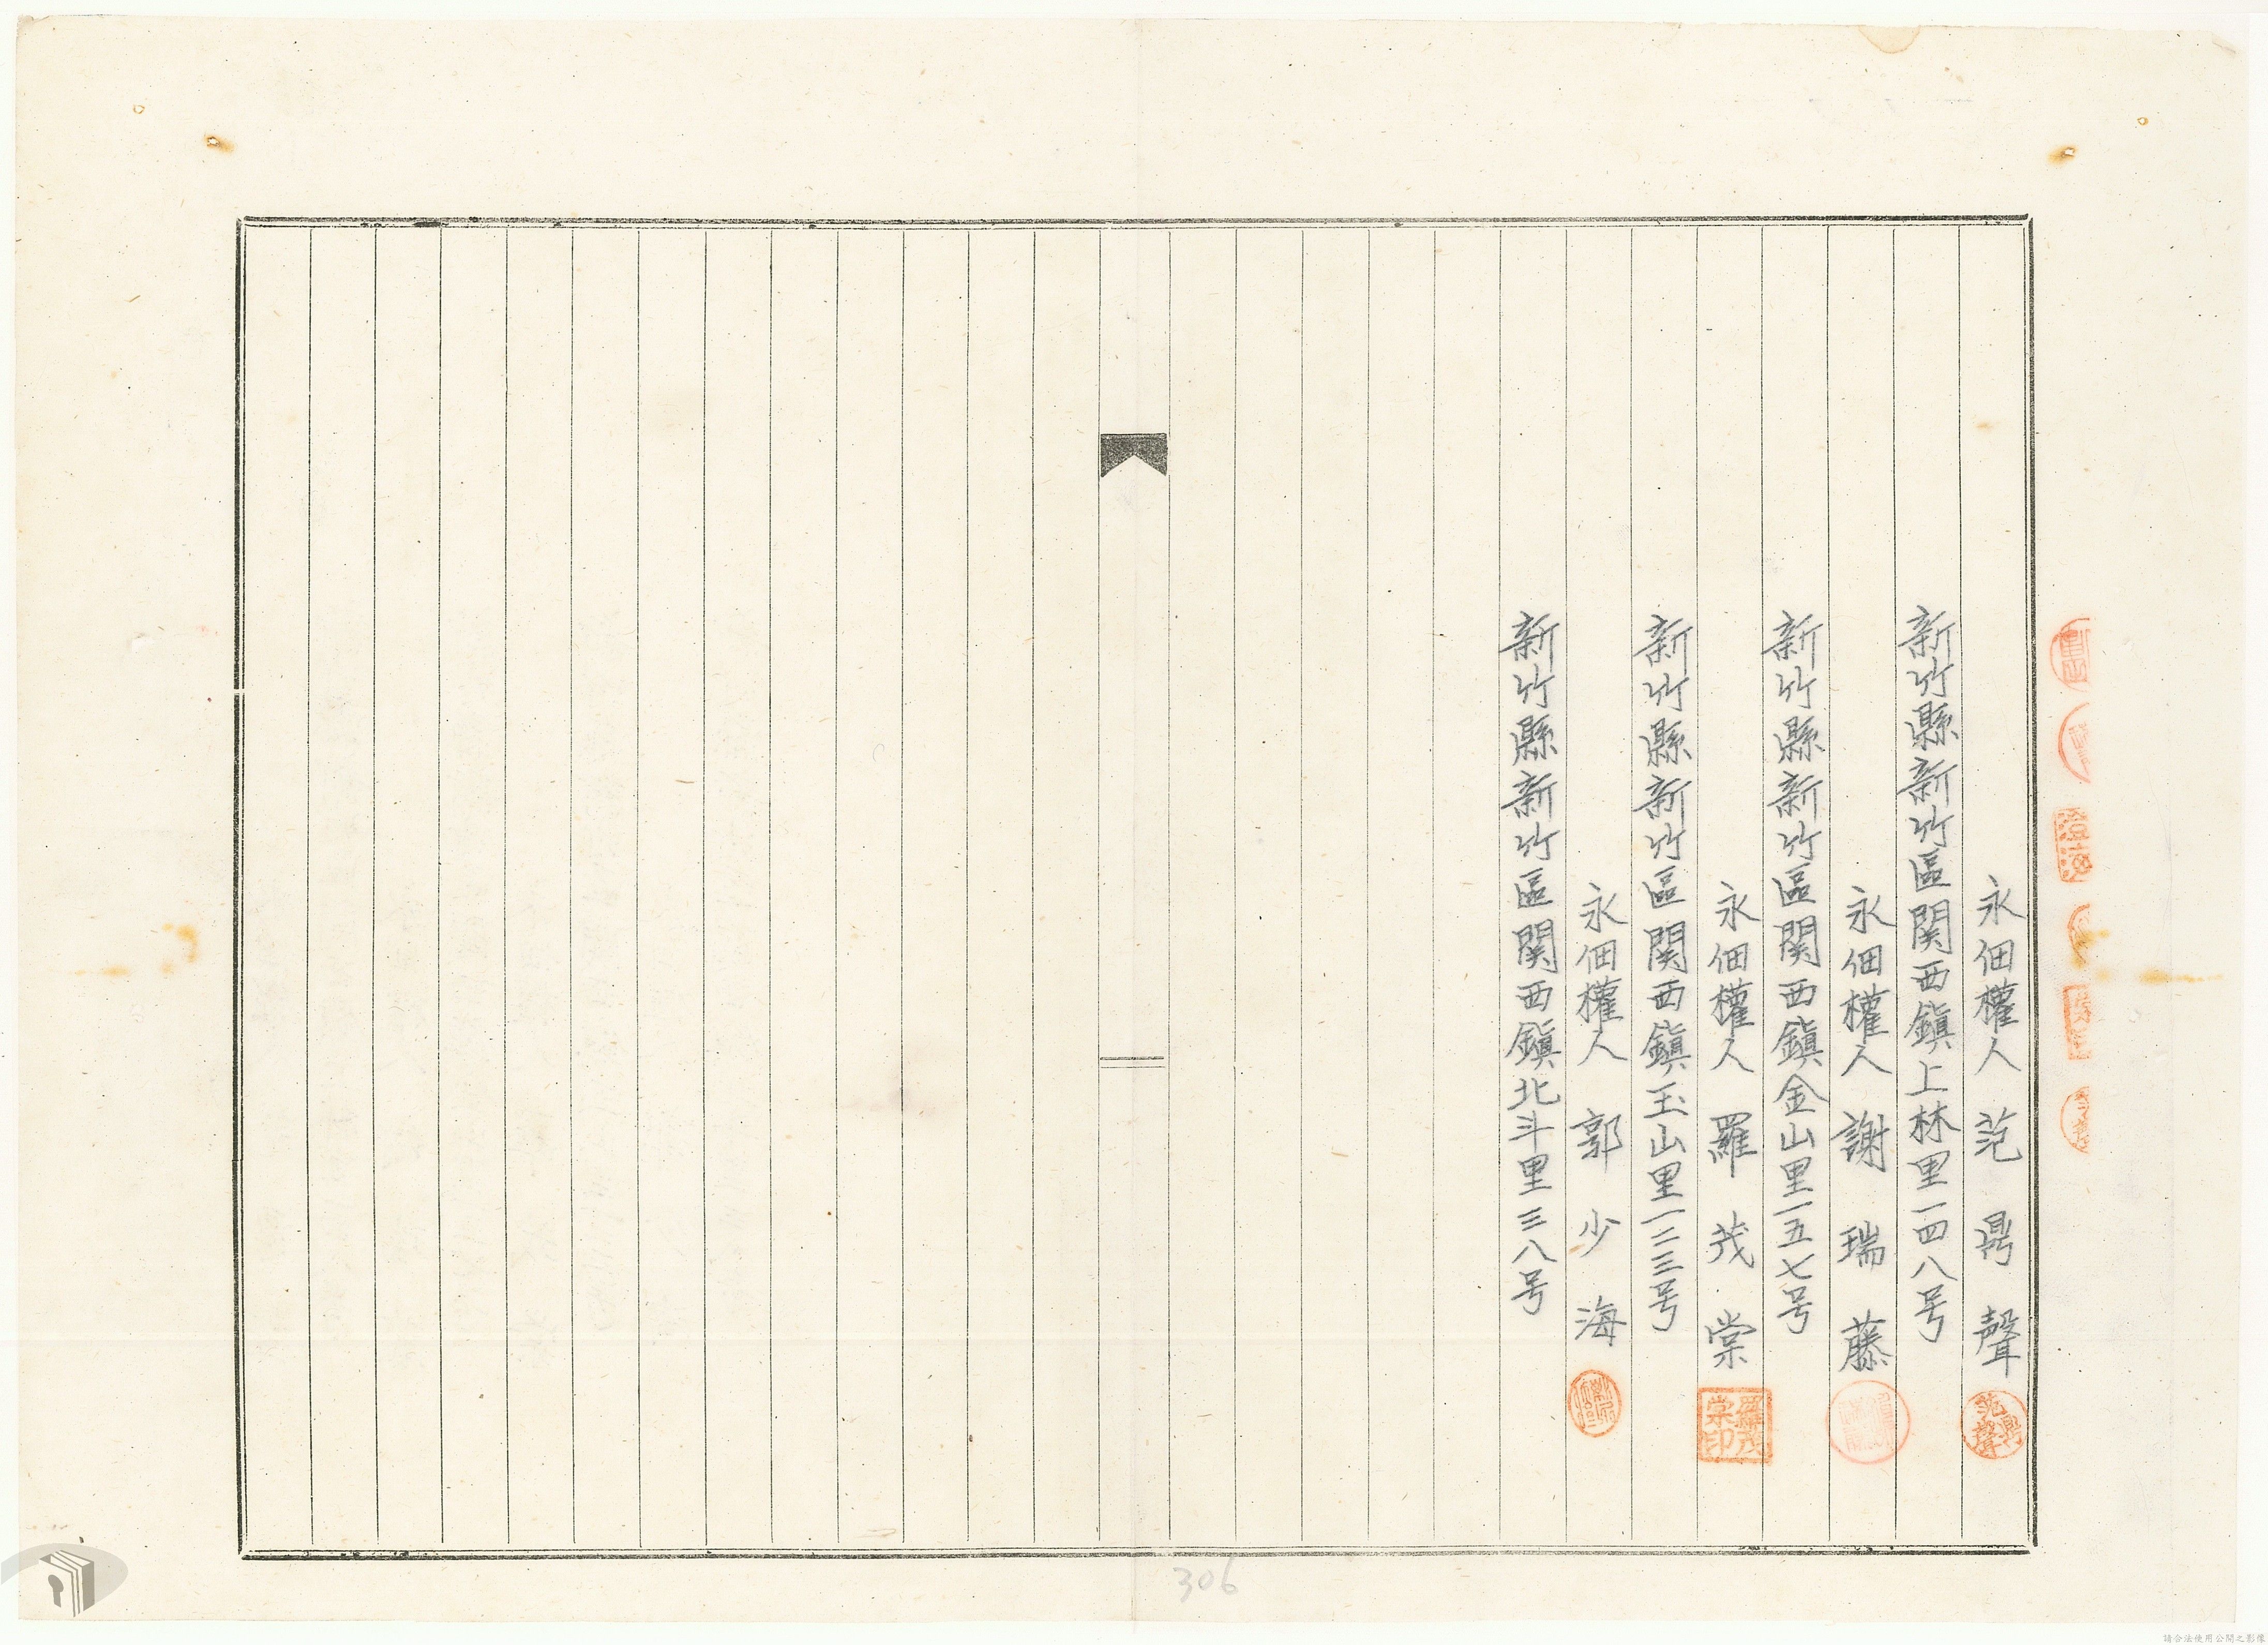 永佃權人 范鼎聲
新竹縣新竹區関西鎭上林里一四八号
永佃權人 謝瑞藤
新竹縣新竹區関西鎭金山里一五七号
永佃權人 羅茂棠
羅茂棠印
新竹縣新竹區関西鎭玉山里一二三号
永佃權人 郭少海
新竹縣新竹區関西鎭北斗里三八号
306
請合法使用公開之影像